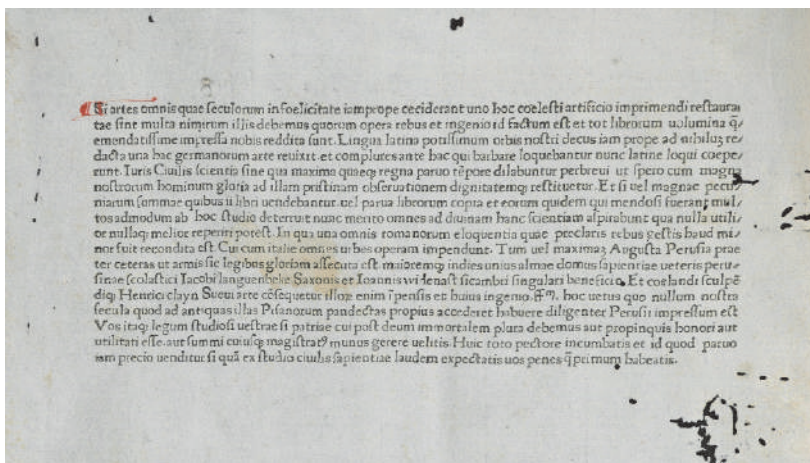 Si artes omnis quae seculorum infoelicitate iamprope ceciderant uno hoc coelesti artificio imprimendi restaura⸗
tae sine multa nimirum illis debemus quorum opera rebus et ingenio id factum est et tot librorum uolumina q̄⸗
emendatissime impressa nobis reddita sunt. Lingua latina potissimum orbis nostri decus iam prope ad nihiluꝫ re⸗
dacta una hac germanorum arte reuixit. et complures ante hac qui barbare loquebantur nunc latine loqui coepe⸗
runt. Iuris Ciuilis scientia sine qua maxima quaeqꝫ regna paruo tēpore dilabuntur perbreui ut spero cum magna
nostrorum hominum gloria ad illam pristinam obseruationem dignitatemqꝫ restituetur. Et si uel magnae pecu⸗
niarum summae quibus ii libri uendebantur. uel parua librorum copia et eorum quidem qui mendosi fuerant mul⸗
tos admodum ab hoc studio deterruit nunc merito omnes ad diuinam hanc scientiam aspirabunt qua nulla utili⸗
or nullaqꝫ melior reperiri potest. In qua una omnis romanorum eloquentia quae preclaris rebus gestis haud mi⸗
nor fuit recondita est. Cui cum italie omnes urbes operam impendunt. Tum uel maximaꝫ Augusta Perusia prae
ter ceteras ut armis sic legibus gloriam assecuta est maioremqꝫ indies unius almae domus sapientiae ueteris peru⸗
sinae scolastici Iacobi languenbeke Saxonis et Ioannis widenast sicambri singulari beneficio. Et coelandi sculpē
diqꝫ Henrici clayn Sueui arte cōsequetur illoꝝ enim īpensis et huius ingenio. hoc uetus quo nullum nostra
secula quod ad antiquas illas Pisanorum pandectas propius accederet habuere diligenter Perusii impressum est
Vos itaqꝫ legum studiosi uestrae si patriae cui post deum immortalem plura debemus aut propinquis honori aut
utilitati esse. aut summi cuiusqꝫ magistratꝰ munus gerere uelitis. Huic toto pectore incumbatis et id quod paruo
iam precio uenditur si quā ex studio ciuilis sapientiae laudem expectatis uos penes q̄primum habeatis.